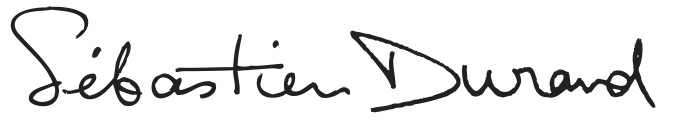 Sébastien Durand